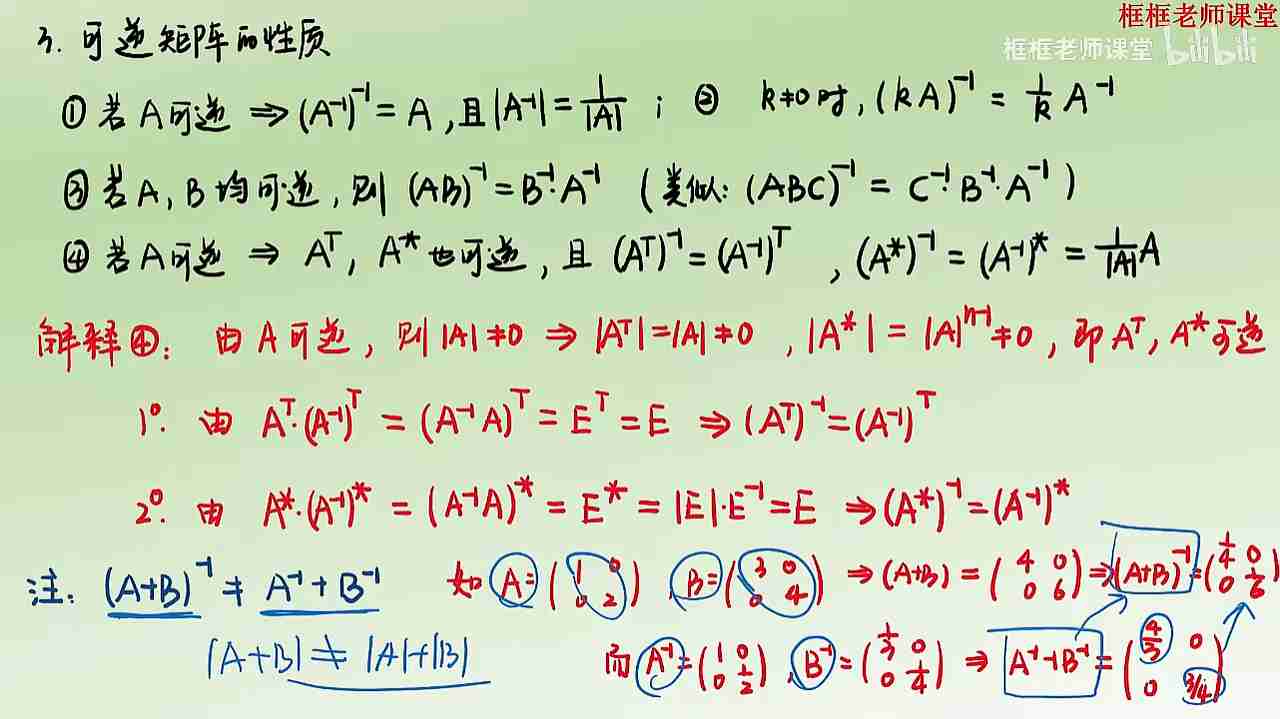 框框老师课堂
框框老师课堂 bilibili
3. 可逆矩阵的性质
① 若A可逆 ⇒ (A⁻¹)⁻¹ = A , 且|A⁻¹| = 1/|A| ; ② k≠0时, (kA)⁻¹ = 1/k A⁻¹
③ 若A, B均可逆, 则 (AB)⁻¹ = B⁻¹·A⁻¹ (类似: (ABC)⁻¹ = C⁻¹·B⁻¹·A⁻¹)
④ 若A可逆 ⇒ Aᵀ, A* 也可逆, 且 (Aᵀ)⁻¹ = (A⁻¹)ᵀ , (A*)⁻¹ = (A⁻¹)* = 1/|A| A
解释④: 由A可逆, 则|A|≠0 ⇒ |Aᵀ|=|A|≠0 , |A*| = |A|ⁿ⁻¹≠0 , 即Aᵀ, A*可逆
1°. 由 Aᵀ·(A⁻¹)ᵀ = (A⁻¹A)ᵀ = Eᵀ = E ⇒ (Aᵀ)⁻¹ = (A⁻¹)ᵀ
2°. 由 A*·(A⁻¹)* = (A⁻¹A)* = E* = |E|·E⁻¹ = E ⇒ (A*)⁻¹ = (A⁻¹)*
注: (A+B)⁻¹ ≠ A⁻¹ + B⁻¹ 如 A = (1 0; 0 2) , B = (3 0; 0 4) ⇒ (A+B) = (4 0; 0 6) ⇒ (A+B)⁻¹ = (1/4 0; 0 1/6)
|A+B| ≠ |A|+|B| 而 A⁻¹ = (1 0; 0 1/2) , B⁻¹ = (1/3 0; 0 1/4) ⇒ A⁻¹+B⁻¹ = (4/3 0; 0 3/4)